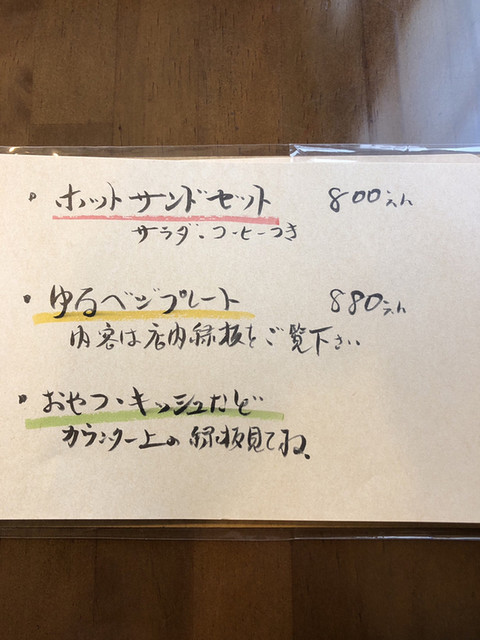 ・ホットサンドセット 800えん
サラダ、コーヒーつき
・ゆるベジプレート 880えん
内容は店内緑板をご覧下さい
・おやつ・キッシュなど
カウンター上の緑板見てね、